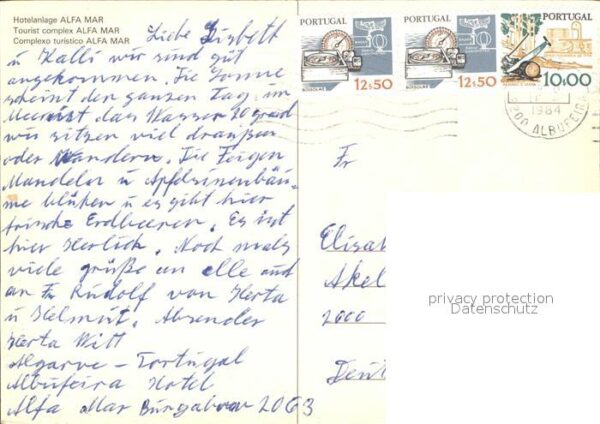 Hotelanlage ALFA MAR
Tourist complex ALFA MAR
Complexo turístico ALFA MAR
Liebe Lisbett
u Kalli wir sind gut
angekommen. Die Sonne
scheint den ganzen Tag, im
Meer ist das Wasser 20 grad
wir sitzen viel draußen
oder Wandern. Die Feigen
Mandeln u Apfelsinenbäu-
me blühen u es gibt hier
frische Erdbeeren. Es ist
hier Herlich. Noch mals
viele grüße an alle auch
an Fr Rudolf von Herta
u Helmut. Absender
Herta Witt
Algarve - Portugal
Albufeira Hotel
Alfa Mar Bungabow 2063
PORTUGAL
BÚSSOLAS
12$50
PORTUGAL
BÚSSOLAS
12$50
PORTUGAL
10$00
1984
200 ALBUFEIRA
Fr
Elisa
Akel
2000
Deut
privacy protection
Datenschutz